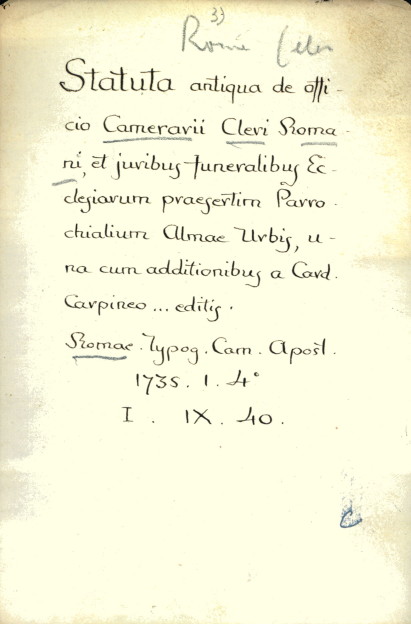 33
Rome
Statuta antiqua de offi-
cio Camerarii Cleri Roma-
ni, et juribus funeralibus Ec-
clesiarum praesertim Parro-
chialium Almae Urbis, u-
na cum additionibus a Card.
Carpineo ... editis.
Romae. Typog. Cam. Apost.
1735. 1. 4°
I. IX. 40.
C